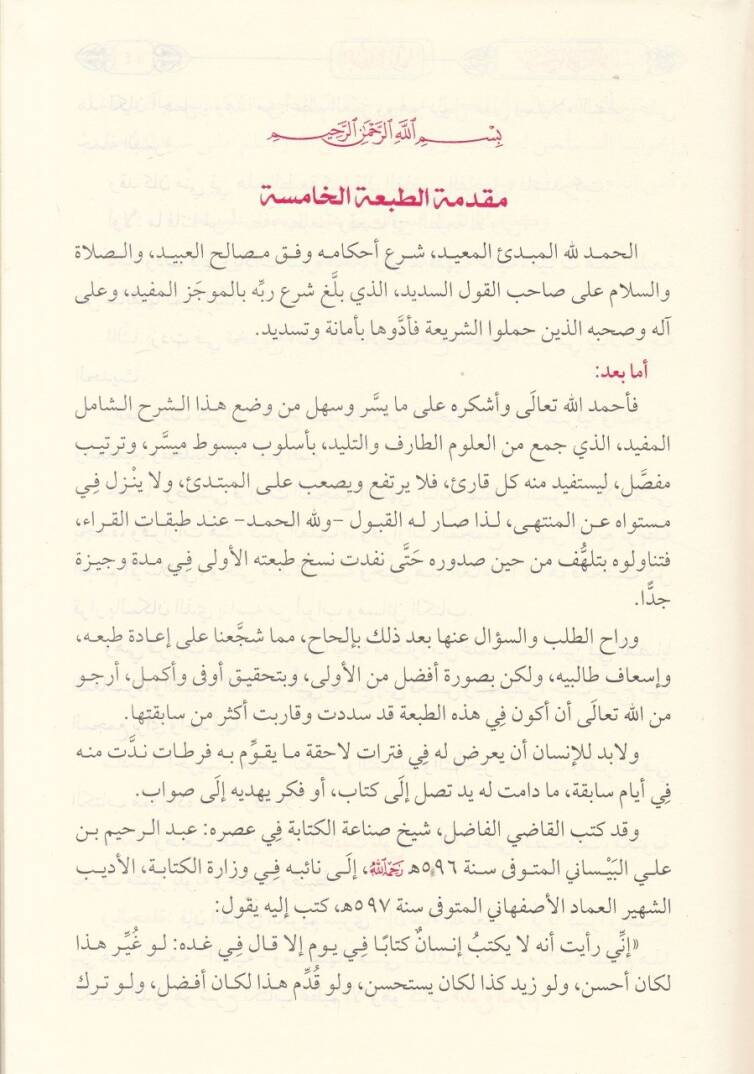 بِسْمِ اللَّهِ الرَّحْمَٰنِ الرَّحِيمِ
مقدمة الطبعة الخامسة
الحمد لله المبدئ المعيد، شرع أحكامه وفق مصالح العبيد، والصلاة
والسلام على صاحب القول السديد، الذي بلَّغ شرع ربِّه بالموجَز المفيد، وعلى
آله وصحبه الذين حملوا الشريعة فأدَّوها بأمانة وتسديد.
أما بعد:
فأحمد الله تعالَى وأشكره على ما يسَّر وسهل من وضع هذا الشرح الشامل
المفيد، الذي جمع من العلوم الطارف والتليد، بأسلوب مبسوط ميسَّر، وترتيب
مفصَّل، ليستفيد منه كل قارئ، فلا يرتفع ويصعب على المبتدئ، ولا ينْزل فِي
مستواه عن المنتهى، لذا صار له القبول -ولله الحمد- عند طبقات القراء،
فتناولوه بتلهُّف من حين صدوره حَتَّى نفدت نسخ طبعته الأولى فِي مدة وجيزة
جدًّا.
وراح الطلب والسؤال عنها بعد ذلك بإلحاح، مما شجَّعنا على إعادة طبعه،
وإسعاف طالبيه، ولكن بصورة أفضل من الأولى، وبتحقيق أوفى وأكمل، أرجو
من الله تعالَى أن أكون فِي هذه الطبعة قد سددت وقاربت أكثر من سابقتها.
ولابد للإنسان أن يعرض له فِي فترات لاحقة ما يقوِّم به فرطات ندَّت منه
فِي أيام سابقة، ما دامت له يد تصل إلَى كتاب، أو فكر يهديه إلَى صواب.
وقد كتب القاضي الفاضل، شيخ صناعة الكتابة فِي عصره: عبد الرحيم بن
علي البَيْساني المتوفى سنة ٥٩٦هـ رَحِمَهُ اللَّهُ، إلَى نائبه فِي وزارة الكتابة، الأديب
الشهير العماد الأصفهاني المتوفى سنة ٥٩٧هـ، كتب إليه يقول:
«إنِّي رأيت أنه لا يكتبُ إنسانٌ كتابًا فِي يوم إلا قال فِي غده: لو غُيِّر هذا
لكان أحسن، ولو زيد كذا لكان يستحسن، ولو قُدِّم هذا لكان أفضل، ولو ترك